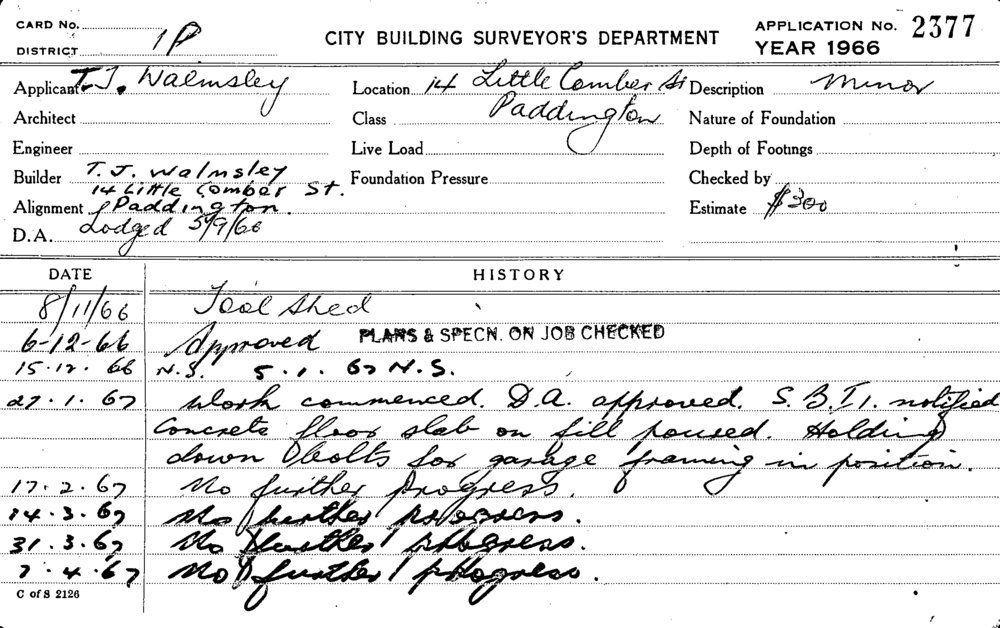 CARD No.
DISTRICT 1P
CITY BUILDING SURVEYOR'S DEPARTMENT
APPLICATION No. 2377
YEAR 1966
Applicant T.J. Walmsley
Location 14 Little Comber St
Paddington
Description Minor
Architect
Class
Nature of Foundation
Engineer
Live Load
Depth of Footings
Builder T. J. Walmsley
14 Little Comber St.
Foundation Pressure
Checked by
Alignment Paddington.
Estimate $300
D.A. Lodged 5/9/66
DATE HISTORY
8/11/66 Tool shed
6-12-66 Approved PLANS & SPECN. ON JOB CHECKED
15.12.66 N.S. 5.1.67 N.S.
27.1.67 Work commenced. D.A. approved. S.B.I. notified
Concrete floor slab on fill poured. Holding
down bolts for garage framing in position.
17.2.67 No further progress.
14.3.67 No further progress.
31.3.67 No further progress.
7.4.67 No further progress.
C of S 2126